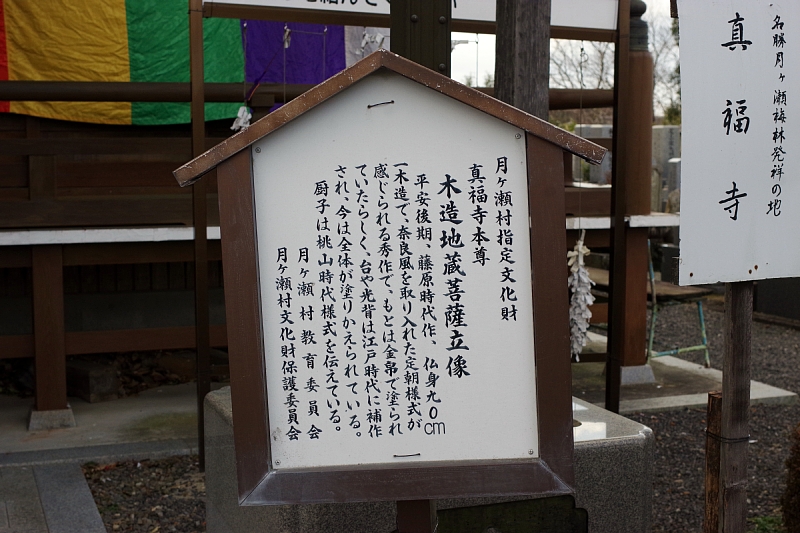 月ヶ瀬村指定文化財
真福寺本尊
木造地蔵菩薩立像
平安後期、藤原時代作、仏身九0cm
一木造で、奈良風を取り入れた定朝様式が
感じられる秀作で、もとは金帛で塗られ
ていたらしく、台や光背は江戸時代に補作
され、今は全体が塗りかえられている。
厨子は桃山時代様式を伝えている。
月ヶ瀬村教育委員会
月ヶ瀬村文化財保護委員会
名勝月ヶ瀬梅林発祥の地
真福寺